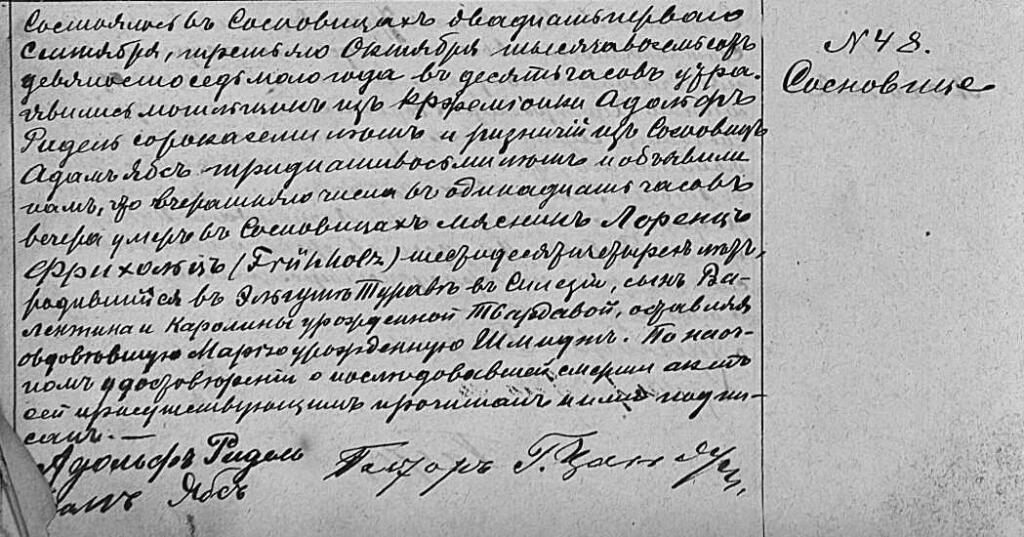 Состоялось въ Сосновицахъ двадцать перваго
Сентября, третьяго Октября тысяча восемьсотъ
девяносто седьмаго года въ десять часовъ утра.
Явились могильщикъ изъ Адольфъ
Ридель сорока семи лѣтъ и ризничій изъ Сосновицъ
Адамъ Ябсъ тридцати восьми лѣтъ и объявили
намъ, что вчерашняго числа въ одинадцать часовъ
вечера умеръ въ Сосновицахъ мясникъ Лоренцъ
Фрихольцъ (Frühholz) шестидесяти четырехъ лѣтъ,
родившійся въ Эльгутъ Туравѣ въ Силезіи, сынъ Ва-
лентина и Каролины урожденной оставляя
овдовѣвшую Марію урожденную Шмидтъ. По наоч-
номъ удостовѣреніи о послѣдовавшей смерти актъ
сей присутствующимъ прочитанъ и ими подпи-
санъ. —
Адольфъ Ридель Пасторъ Г. Цандеръ
Ябсъ
N 48.
Сосновице